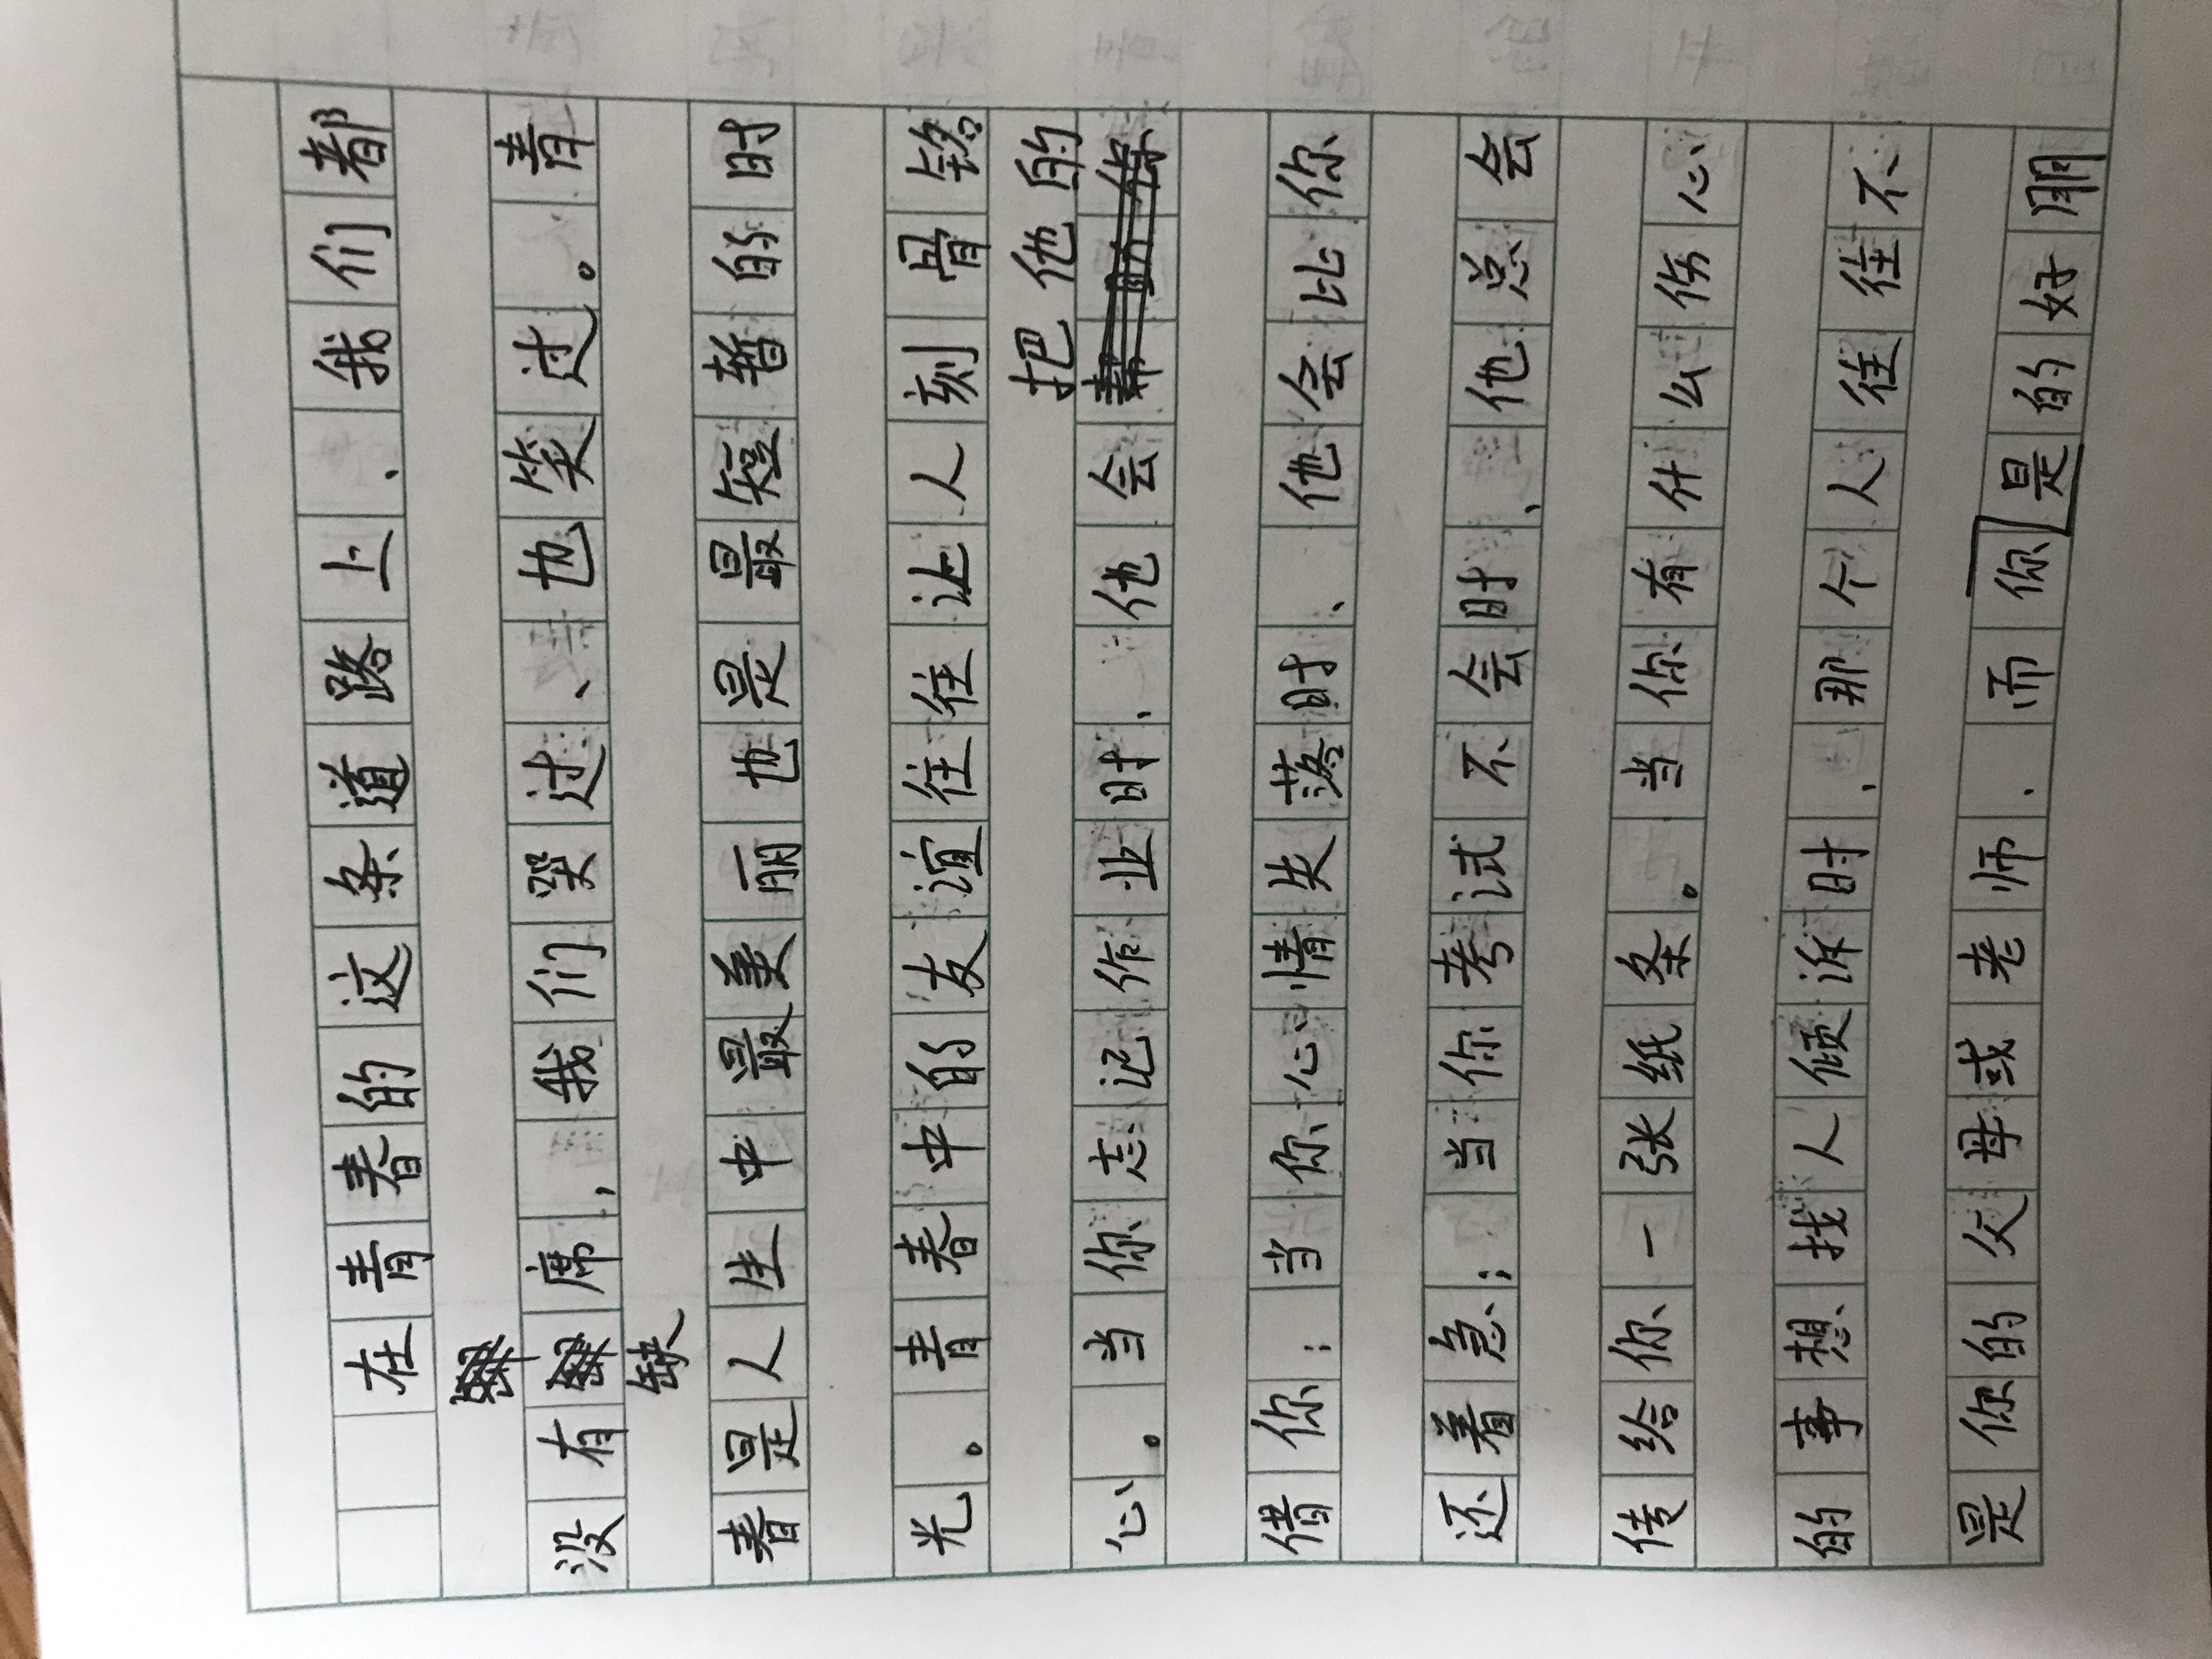 在青春的这条道路上,我们都
没有缺席,我们哭过、也笑过。青
春是人生中最美丽也是最短暂的时
光。青春中的友谊往往让人刻骨铭
心。当你忘记作业时,他会把他的
借你;当你心情失落时、他会比你
还着急;当你考试不会时、他总会
传给你一张纸条。当你有什么伤心
的事想找人倾诉时,那个人往往不
是你的父母或老师,而你是的好朋